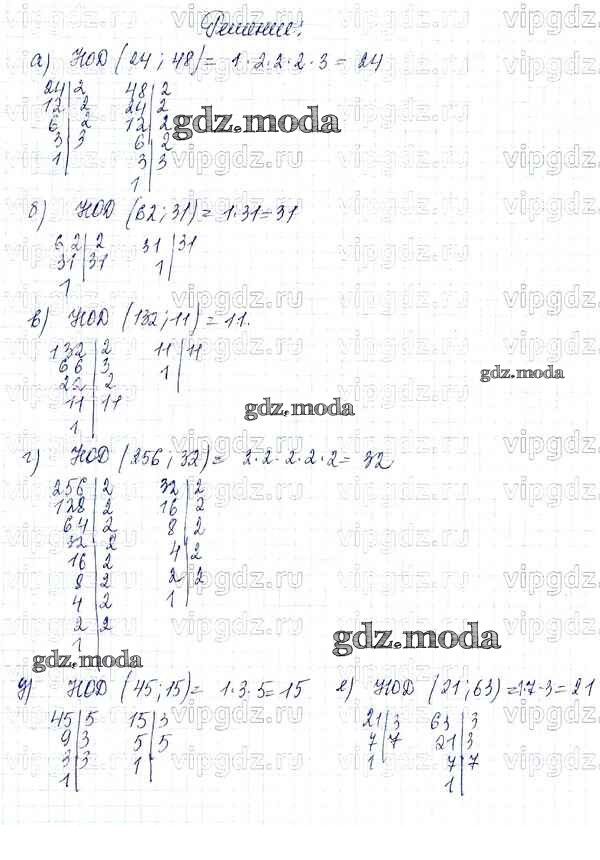 Решение:
а) НОД (24; 48) = 1·2·2·2·3 = 24
24|2 48|2
12|2 24|2
6|2 12|2
3|3 6|2
1| 3|3
1|
gdz.moda
б) НОД (62; 31) = 1·31 = 31
62|2 31|31
31|31 1|
1|
в) НОД (132; 11) = 11.
132|2 11|11
66|3 1|
22|2
11|11
1|
gdz.moda
gdz.moda
г) НОД (256; 32) = 2·2·2·2·2 = 32
256|2 32|2
128|2 16|2
64|2 8|2
32|2 4|2
16|2 2|2
8|2 1|
4|2
2|2
1|
gdz.moda
gdz.moda
д) НОД (45; 15) = 1·3·5 = 15 е) НОД (21; 63) = 1·7·3 = 21
45|5 15|3 21|3 63|3
9|3 5|5 7|7 21|3
3|3 1| 1| 7|7
1| 1|
vipgdz.ru